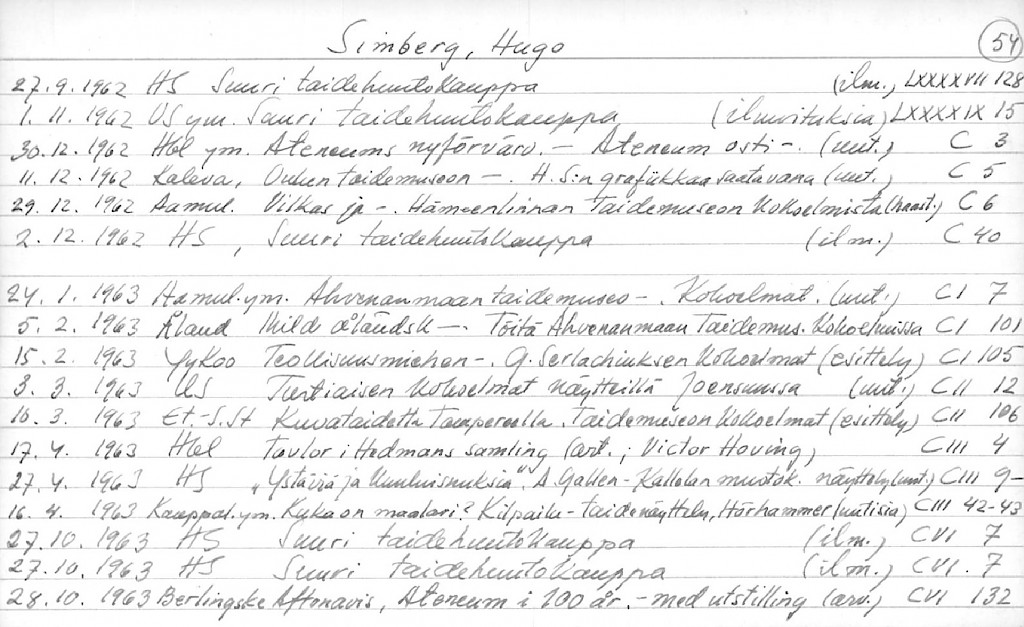 Simberg, Hugo 54
27.9.1962 HS Suuri taidehuutokauppa (ilm.) LXXXXVII 128
1.11.1962 US ym. Suuri taidehuutokauppa (ilmoituksia) LXXXXIX 15
30.12.1962 Hbl ym. Ateneums nyförvärv. — Ateneum osti -. (uut.) C 3
11.12.1962 Kaleva, Oulun taidemuseon —. H.S:n grafiikkaa saatavana (uut.) C 5
29.12.1962 Aamul. Vilkas ja -. Hämeenlinnan Taidemuseon kokoelmista (haast.) C 6
2.12.1962 HS, Suuri taidehuutokauppa (ilm.) C 40
24.1.1963 Aamul. ym. Ahvenanmaan taidemuseo -. Kokoelmat. (uut.) CI 7
5.2.1963 Åland Mild åländsk —. Töitä Ahvenanmaan Taidemus. kokoelmissa CI 101
15.2.1963 YyKoo Teollisuusmiehen -. G. Serlachiuksen kokoelmat (esittely) CI 105
3.3.1963 US Turtiaisen kokoelmat näytteillä Joensuussa (uut.) CII 12
10.3.1963 Et.-S.St Kuvataidetta Tampereella. Taidemuseon kokoelmat (esittely) CII 106
17.4.1963 Hbl Tavlor i Hedmans samling (art.; Victor Hoving) CIII 4
27.4.1963 HS "Ystäviä ja kuuluisuuksia". A. Gallen-Kallelan muotok. näyttely (uut.) CIII 9-
16.4.1963 Kauppal. ym. Kuka on maalari? Kilpailu-taidenäyttely, Hörhammer (uutisia) CIII 42-43
27.10.1963 HS Suuri taidehuutokauppa (ilm.) CVI 7
27.10.1963 HS Suuri taidehuutokauppa (ilm.) CVI. 7
28.10.1963 Berlingske Aftonavis, Ateneum i 100 år. - med utstilling (arv.) CVI 132